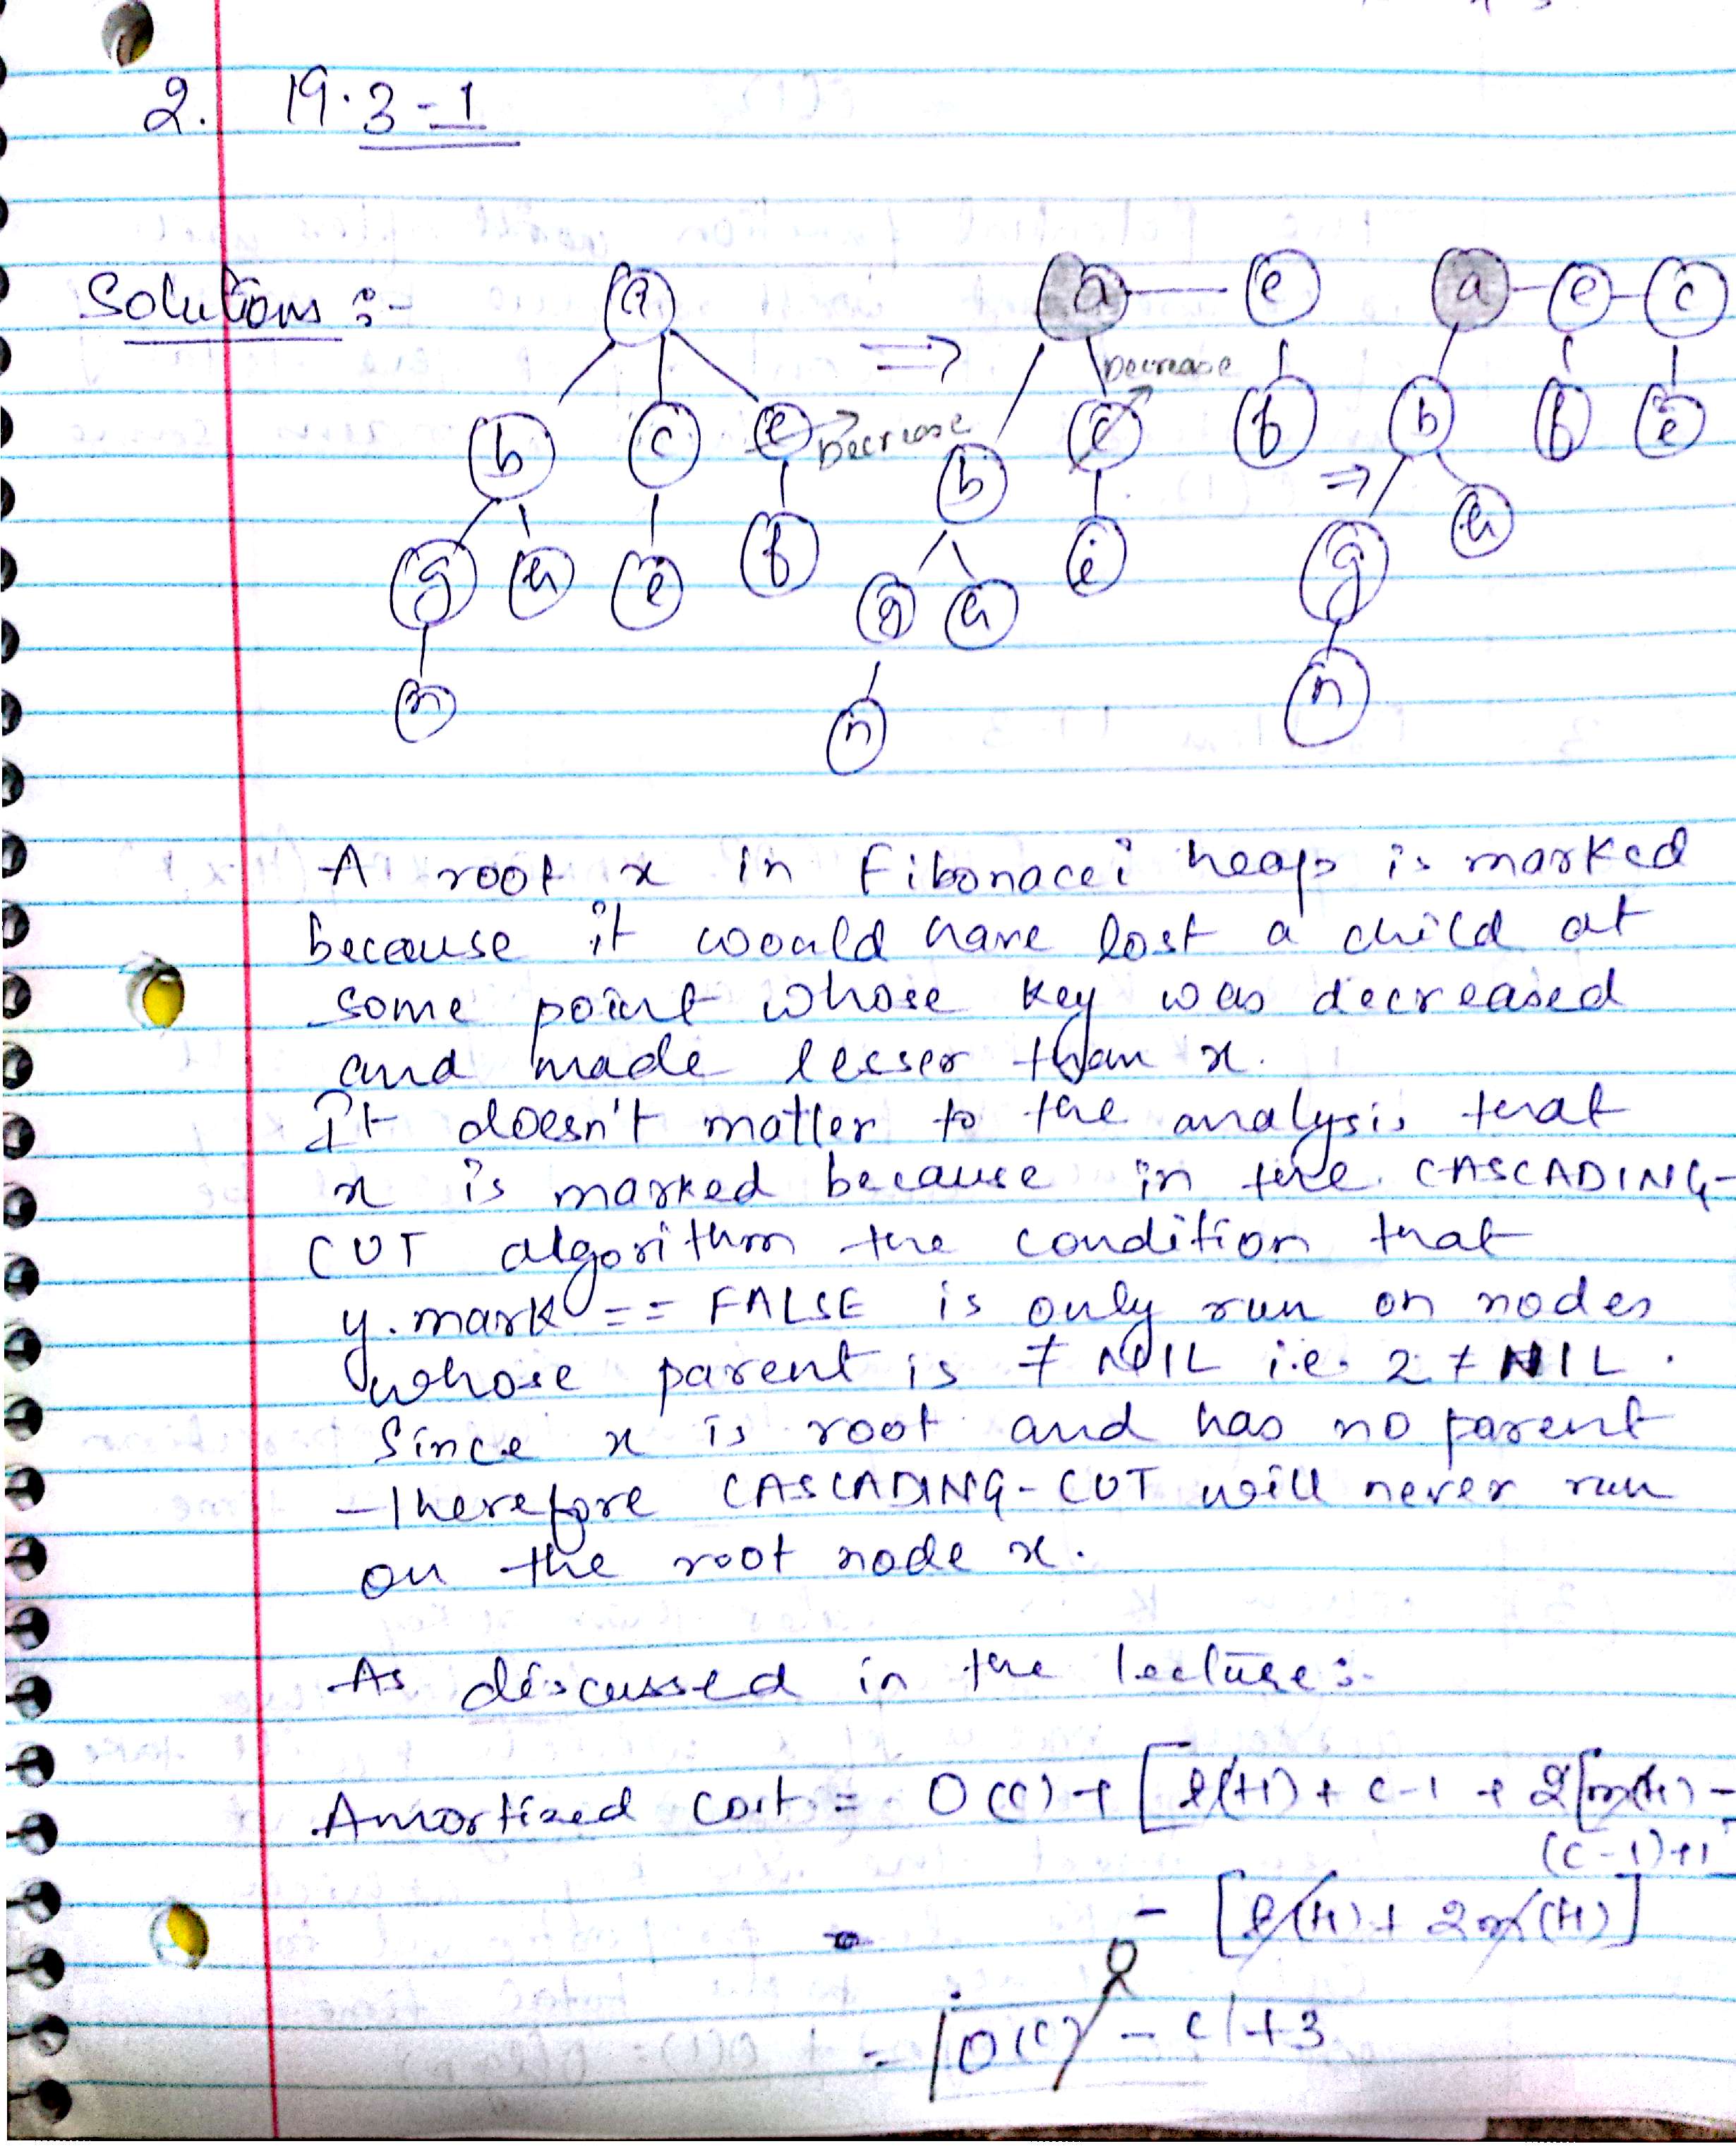 2. 19.3-1
Solution :-
a a e a e c
Decrease
b c e Decrease b c f b f i
g h i f g h i g h
n n n
A root x in Fibonacci heap is marked
because it would have lost a child at
some point whose key was decreased
and made lesser than x.
It doesn't matter to the analysis that
x is marked because in the CASCADING-
CUT algorithm the condition that
y.mark == FALSE is only run on nodes
whose parent is ≠ NIL i.e. z ≠ NIL.
Since x is root and has no parent
Therefore CASCADING-CUT will never run
on the root node x.
As discussed in the lecture:-
Amortized cost = O(c) + [t(H) + c-1 + 2[m(H) -
(c-1)+1]
- [t(H) + 2m(H)]
= O(c) - c + 3